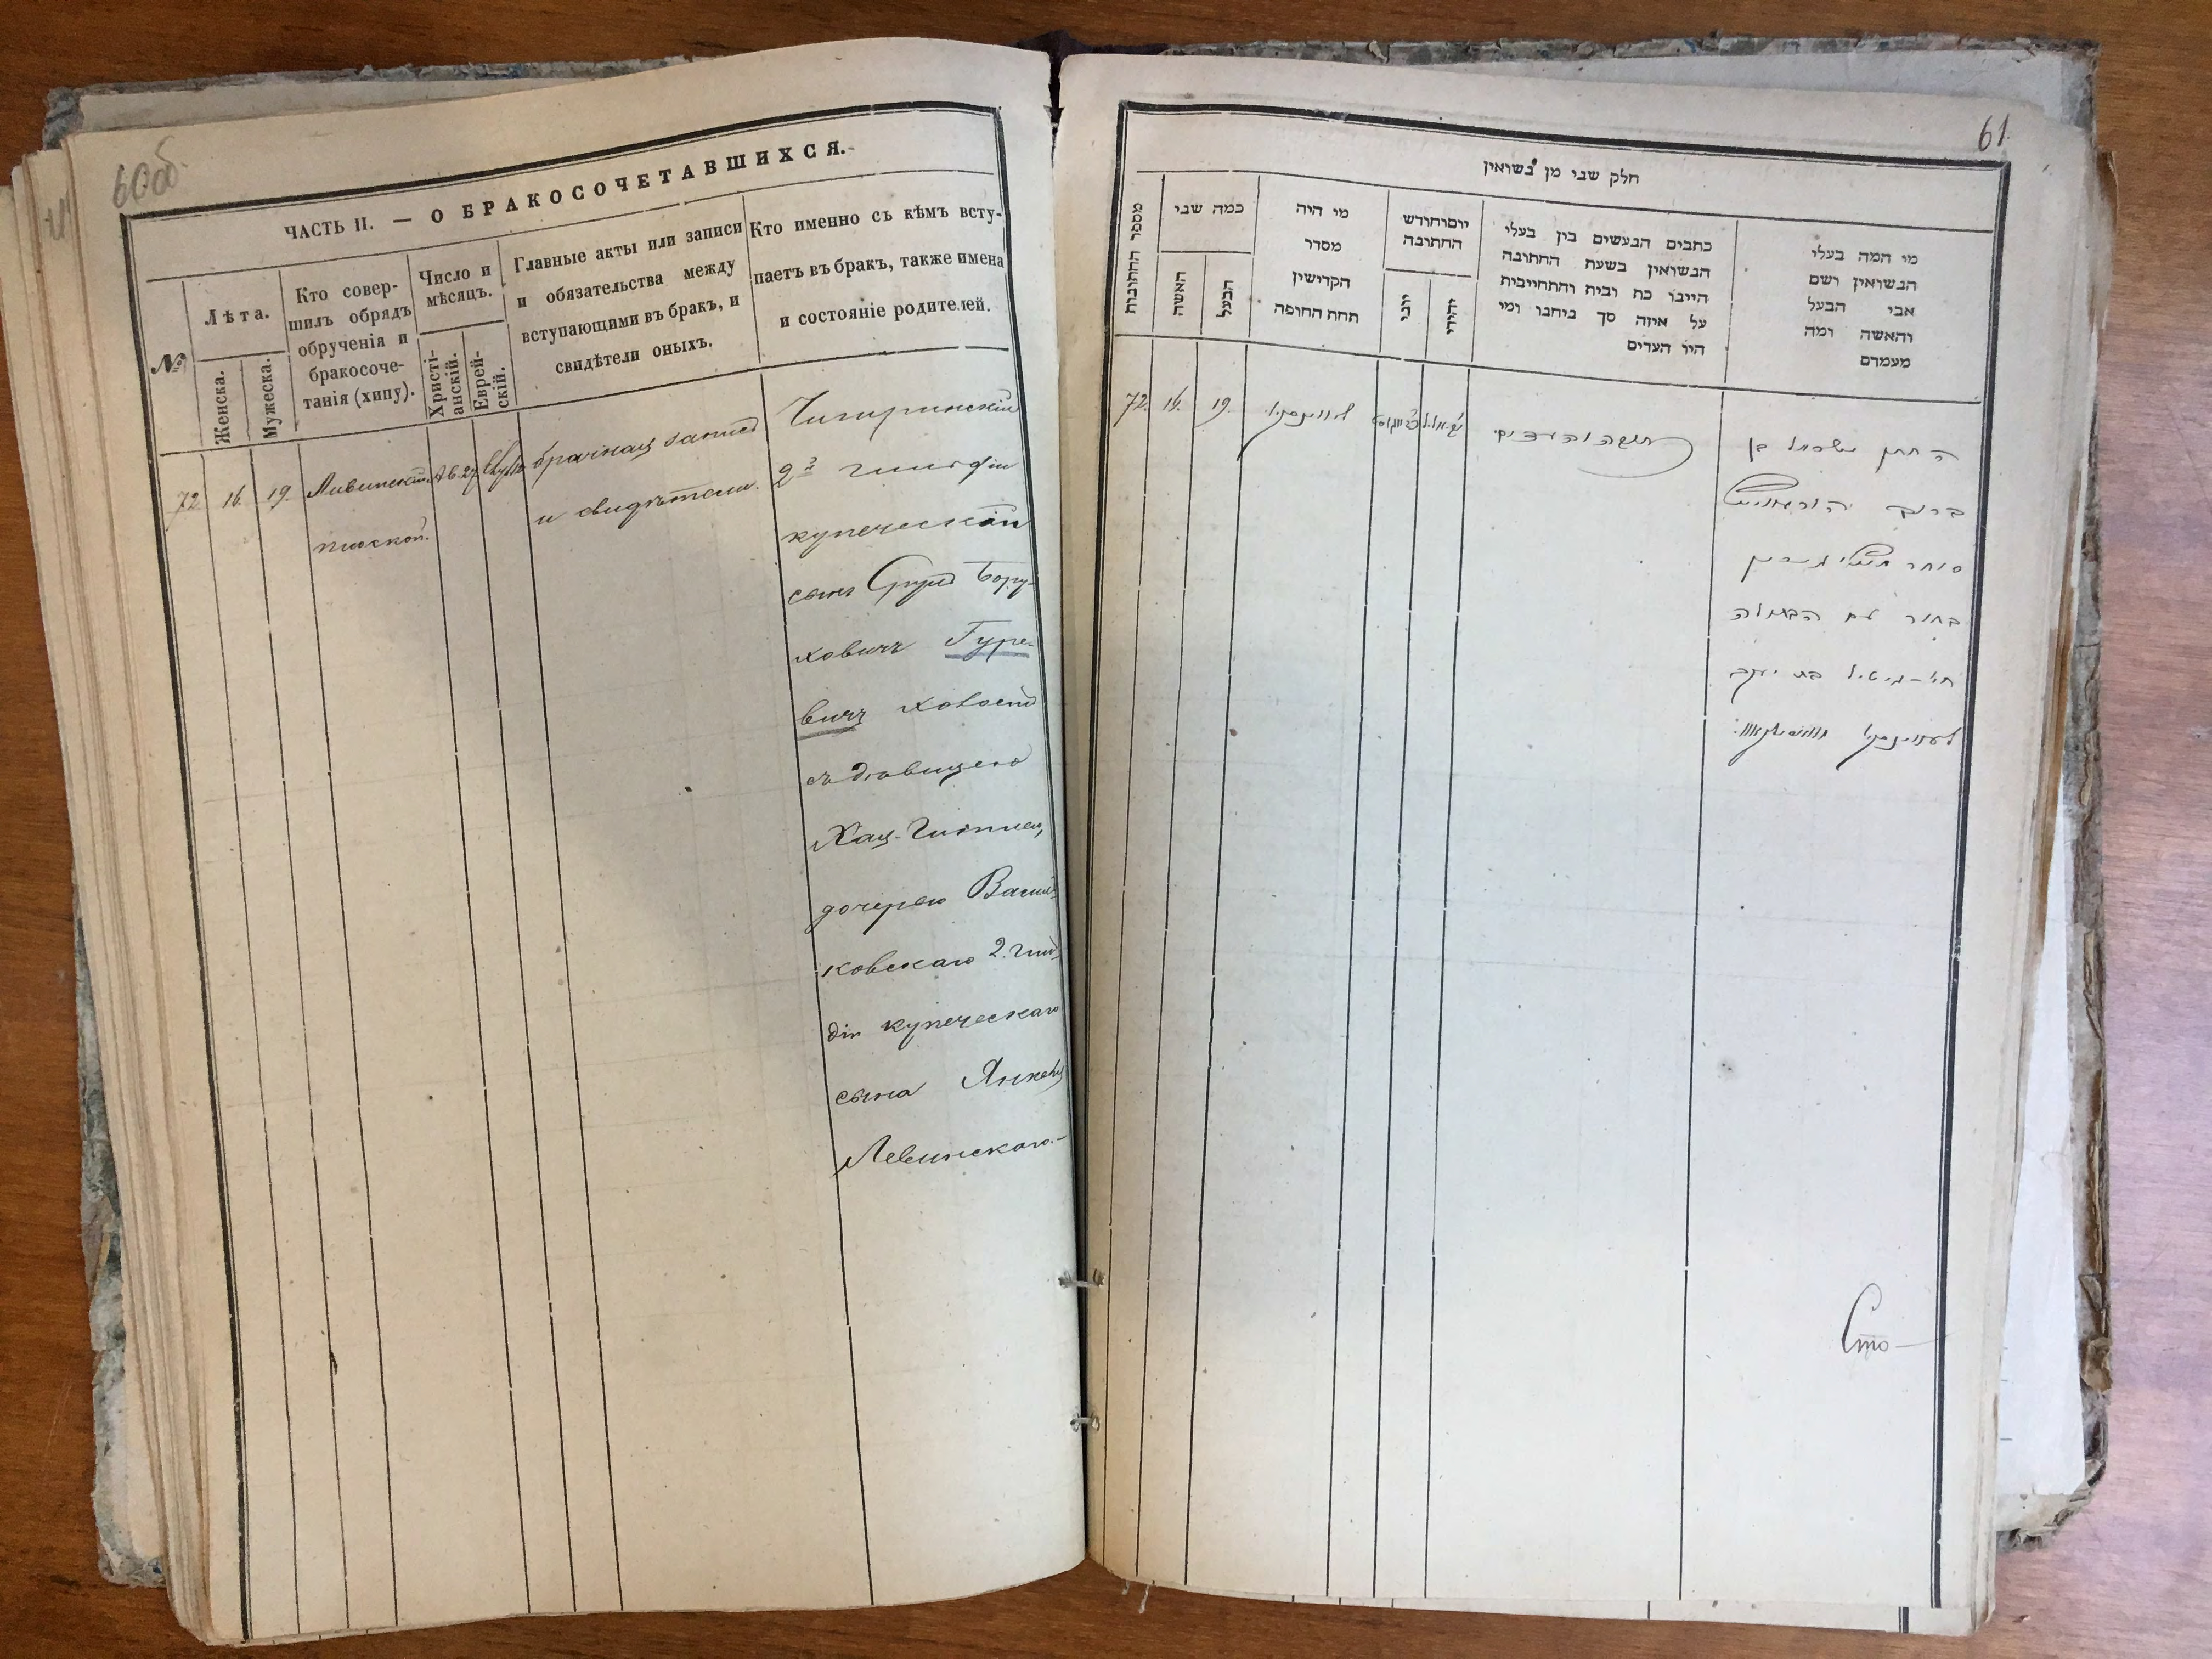 60об.
ЧАСТЬ II. — О БРАКОСОЧЕТАВШИХСЯ.
№
Лѣта.
Женска.
Мужеска.
Кто совер-
шилъ обрядъ
обрученія и
бракосоче-
танія (хипу).
Число и
мѣсяцъ.
Христі-
анскій.
Еврей-
скій.
Главные акты или записи
и обязательства между
вступающими въ бракъ, и
свидѣтели оныхъ.
Кто именно съ кѣмъ всту-
паетъ въ бракъ, также имена
и состояніе родителей.
72
16.
19.
Ав. 27
брачная запись
и свидѣтели.
Чигиринскій
2й гильдіи
купеческій
сынъ Сруль Бору-
ховичъ Гуре-
вичъ холостъ
съ дѣвицею
Хая-Гитлею,
дочерью Василь-
ковскаго 2. гиль-
діи купеческаго
сына Янкеля
Левинскаго.-
61.
חלק שני מן נשואין
מספר החתונות
כמה שני
האשה
הבעל
מי היה
מסדר
הקדישין
תחת החופה
יוםוחודש
החתונה
יוני
יהודי
כתבים הנעשים בין בעלי
הנשואין בשעת החתונה
היינו כת ובית והתחייבית
על איזה סך ניתנו ומי
היו העדים
מי המה בעלי
הנשואין ושם
אבי הבעל
והאשה ומה
מעמדם
72.
16.
19.
לווינסקי
החתן ישראל בן
ברוך
סוחר
בחור עם הבתולה
חי'-גיטל בת יעקב
לעווינסקי
Сто—